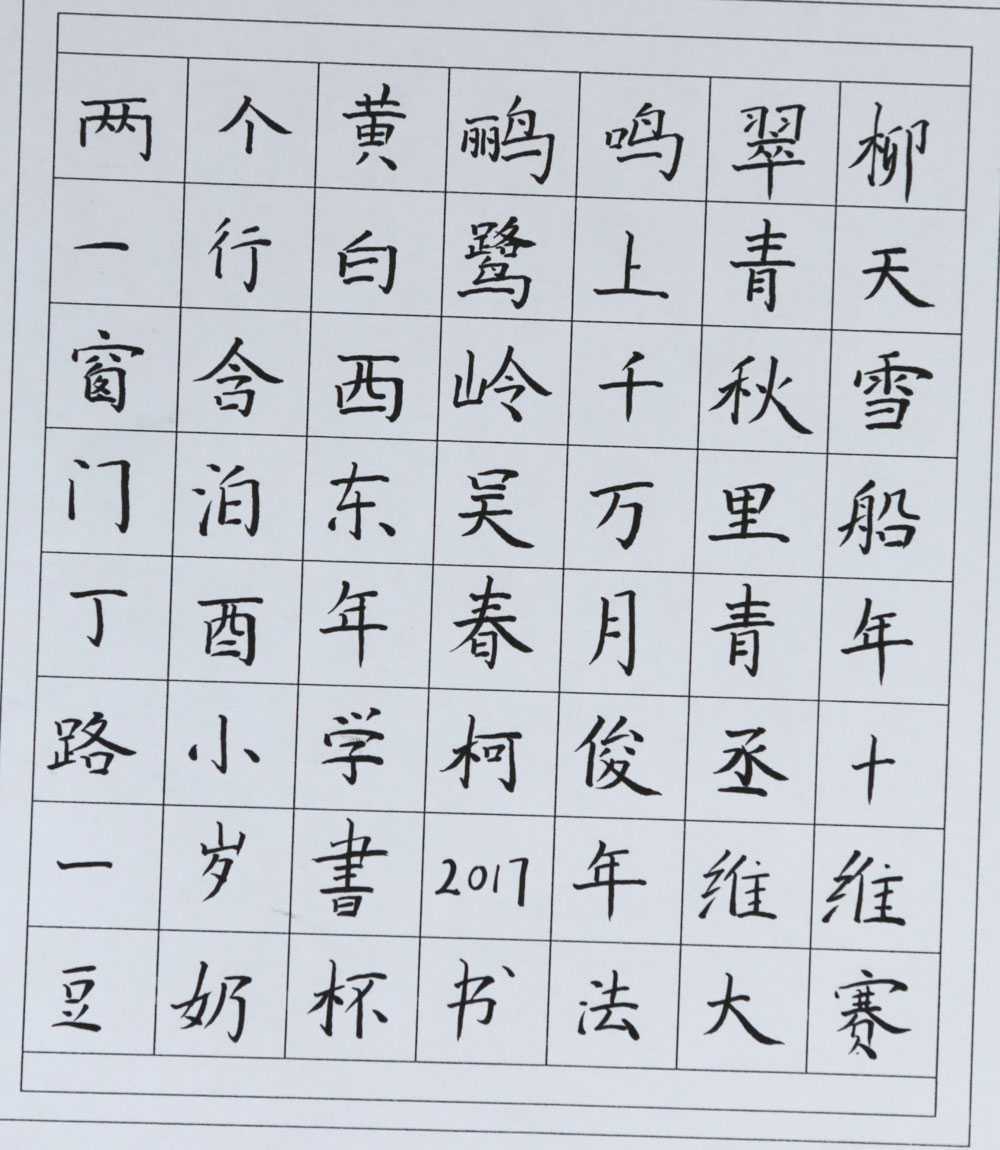 两个黄鹂鸣翠柳
一行白鹭上青天
窗含西岭千秋雪
门泊东吴万里船
丁酉年春月青年
路小学柯俊丞十
一岁書2017年维维
豆奶杯书法大赛